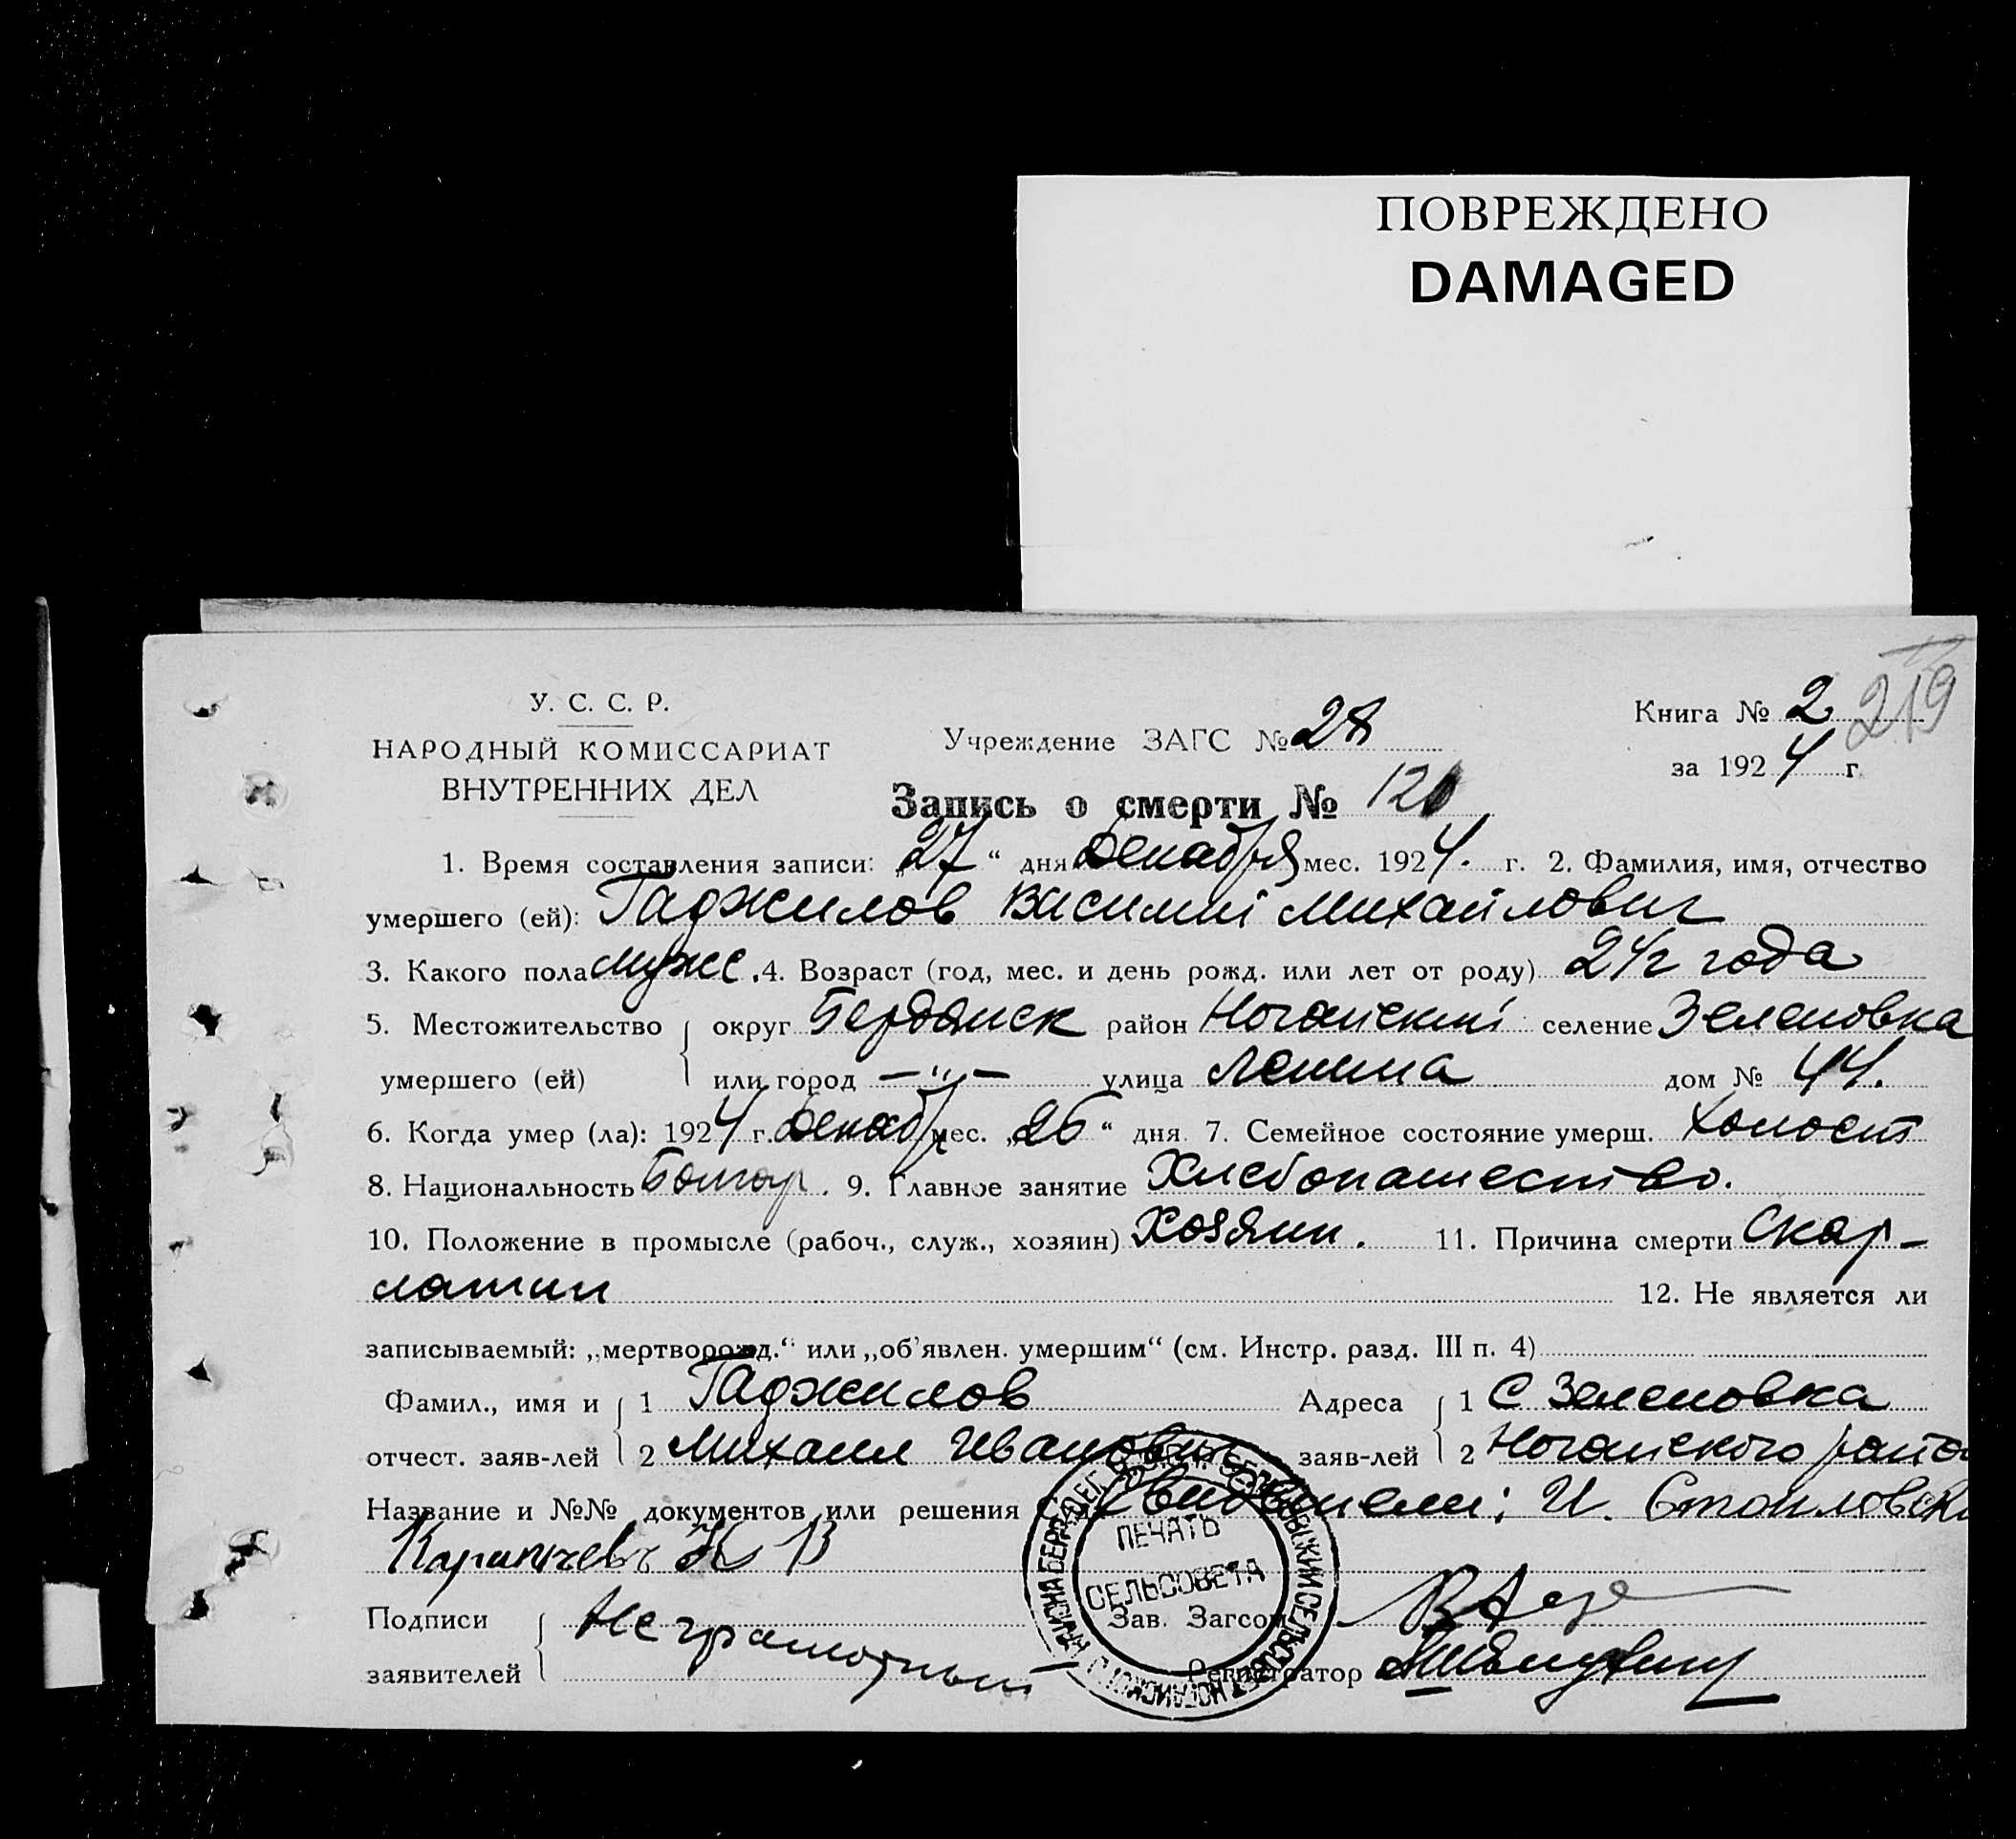 ПОВРЕЖДЕНО
DAMAGED
У. С. С. Р.
НАРОДНЫЙ КОМИССАРИАТ
ВНУТРЕННИХ ДЕЛ
Учреждение ЗАГС № 28
Книга № 2 219
за 1924 г.
Запись о смерти № 120
1. Время составления записи: „27“ дня Декабря мес. 1924. г. 2. Фамилия, имя, отчество
умершего (ей): Гаджилов Василий Михайлович
3. Какого пола мужс. 4. Возраст (год, мес. и день рожд. или лет от роду) 2 года
5. Местожительство округ Бердянск район Ногайский селение Зеленовка
умершего (ей) или город —"— улица Ленина дом № 44.
6. Когда умер (ла): 1924 г. Декабр мес. „26“ дня 7. Семейное состояние умерш. Холост
8. Национальность Болгар. 9. Главное занятие Хлебопашество.
10. Положение в промысле (рабоч., служ., хозяин) Хозяин. 11. Причина смерти Скар-
латин 12. Не является ли
записываемый: „мертворожд.“ или „об'явлен. умершим“ (см. Инстр. разд. III п. 4)
Фамил., имя и 1 Гаджилов Адреса 1 С Зеленовка
отчест. заяв-лей 2 Михаил Иванович заяв-лей 2 Ногайского райо
Название и №№ документов или решения Свидетели: И.
Подписи Неграмотный Зав. Загсом
заявителей Регистратор
ПЕЧАТЬ
СЕЛЬСОВЕТА